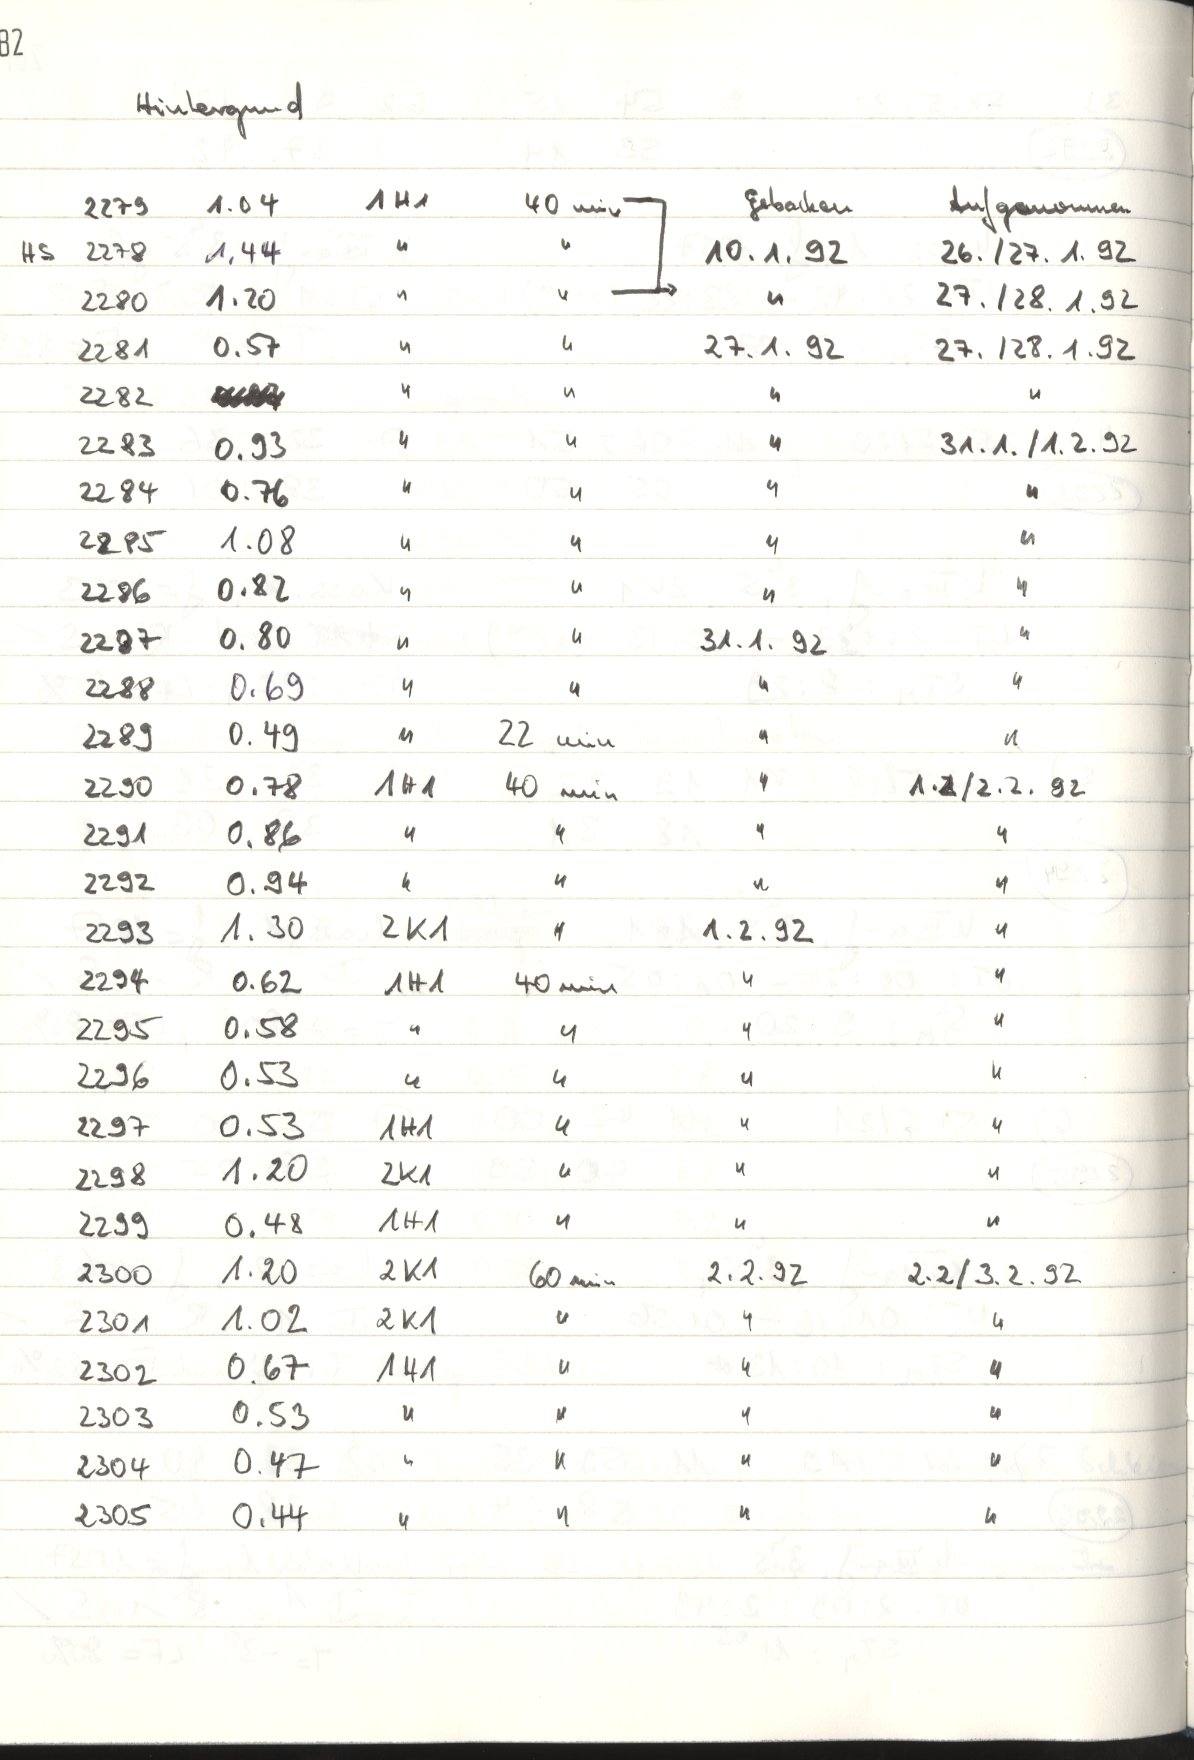 82
Hintergrund
2279 1.04 1H1 40 min Gebacken Aufgenommen
HS 2278 1,44 " " 10.1.92 26./27.1.92
2280 1.20 " " " 27./28.1.92
2281 0.57 " " 27.1.92 27./28.1.92
2282 " " " "
2283 0.93 " " " 31.1./1.2.92
2284 0.76 " " " "
2285 1.08 " " " "
2286 0.82 " " " "
2287 0.80 " " 31.1.92 "
2288 0.69 " " " "
2289 0.49 " 22 min " "
2290 0.78 1H1 40 min " 1.2/2.2.92
2291 0.86 " " " "
2292 0.94 " " " "
2293 1.30 2K1 " 1.2.92 "
2294 0.62 1H1 40 min " "
2295 0.58 " " " "
2296 0.53 " " " "
2297 0.53 1H1 " " "
2298 1.20 2K1 " " "
2299 0.48 1H1 " " "
2300 1.20 2K1 60 min 2.2.92 2.2/3.2.92
2301 1.02 2K1 " " "
2302 0.67 1H1 " " "
2303 0.53 " " " "
2304 0.47 " " " "
2305 0.44 " " " "